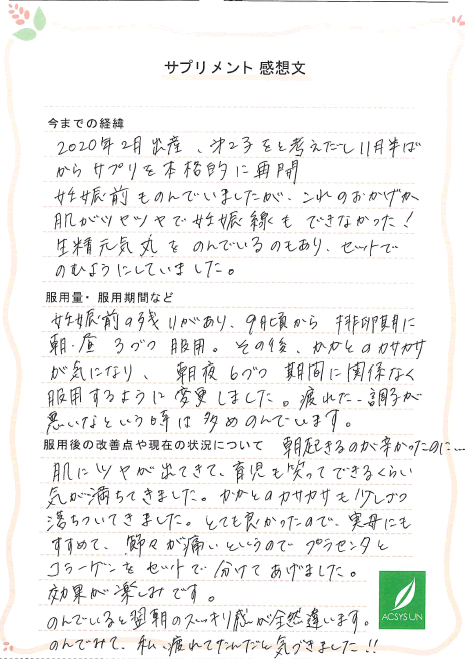 サプリメント 感想文
今までの経緯
2020年2月出産、第2子をと考えだし11月半ば
からサプリを本格的に再開
妊娠前ものんでいましたが、これのおかげか
肌がツヤツヤで妊娠線もできなかった！
生精元気丸をのんでいるのもあり、セットで
のむようにしていました。
服用量・服用期間など
妊娠前の残りがあり、9月頃から排卵期に
朝・昼 3づつ服用。その後、かかとのカサカサ
が気になり、朝夜6づつ期間に関係なく
服用するように変更しました。疲れた…調子が
悪いなという時は多めのんでいます。
服用後の改善点や現在の状況について 朝起きるのが辛かったのに…
肌にツヤが出てきて、育児も笑ってできるくらい
気が満ちてきました。かかとのカサカサも少しづつ
落ちついてきました。とても良かったので、実母にも
すすめて、節々が痛いというのでプラセンタと
コラーゲンをセットで分けてあげました。
効果が楽しみです。
のんでいると翌朝のスッキリ感が全然違います。
のんでみて、私、疲れてたんだと気づきました!!
ACSYSUN